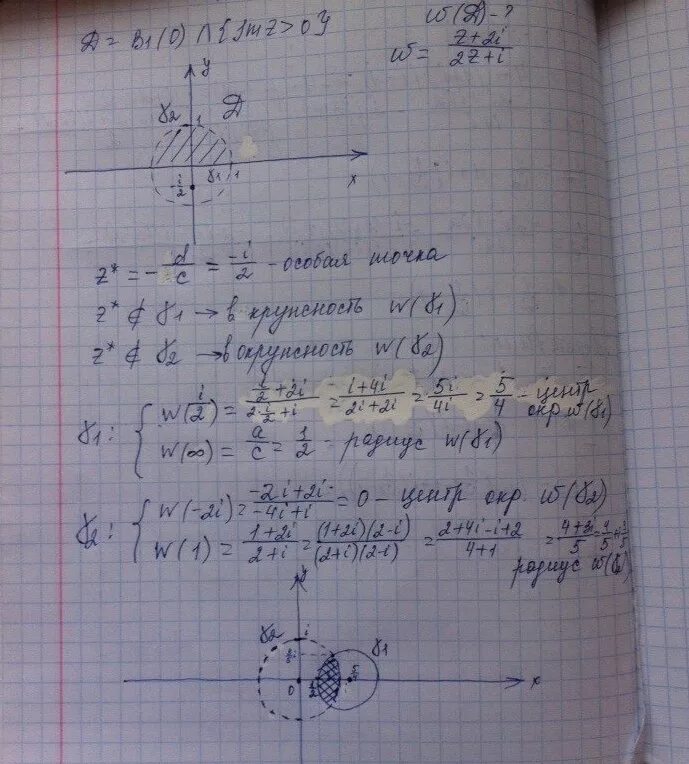 D = B1(0) ∩ {Im z > 0}
w(D) - ?
w = (z+2i)/(2z+i)
y
γ2
1
D
-i/2
γ1
1
x
z* = -d/c = -i/2 - особая точка
z* ∉ γ1 → в кружность w(γ1)
z* ∉ γ2 → в окружность w(γ2)
γ1: { w(i/2) = (i/2+2i)/(2·i/2+i) = (i+4i)/(2i+2i) = 5i/4i = 5/4 - центр окр w(γ1)
w(∞) = a/c = 1/2 - радиус w(γ1)
γ2: { w(-2i) = (-2i+2i)/(-4i+i) = 0 - центр окр. w(γ2)
w(1) = (1+2i)/(2+i) = ((1+2i)(2-i))/((2+i)(2-i)) = (2+4i-i+2)/(4+1) = (4+3i)/5
радиус w(γ2)
y
γ2
i
γ1
0
1/2
x